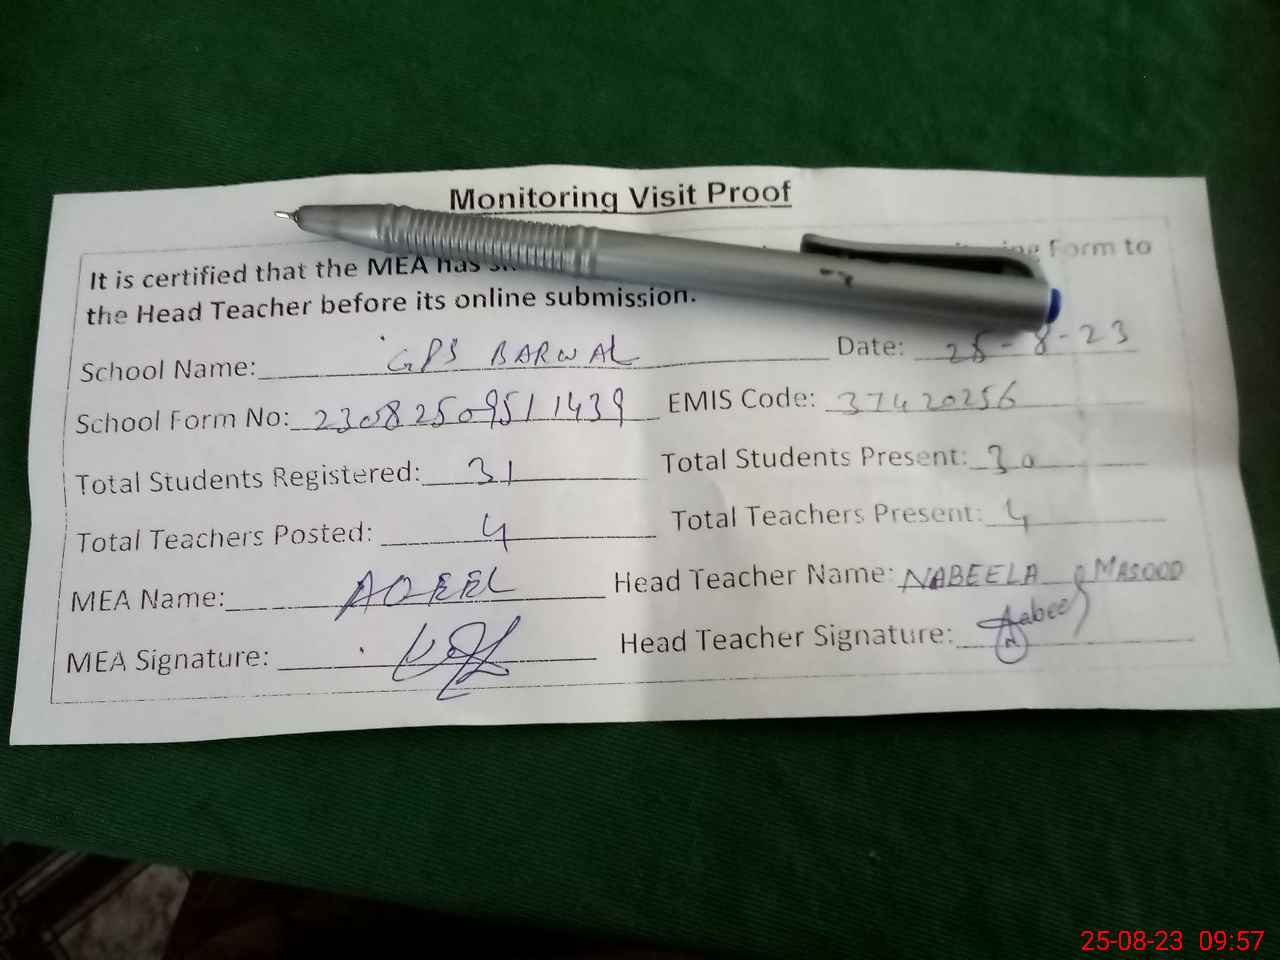 Monitoring Visit Proof
It is certified that the MEA has Form to
the Head Teacher before its online submission.
School Name: GPS BARWAL Date: 25-8-23
School Form No: 23082509511439 EMIS Code: 37420256
Total Students Registered: 31 Total Students Present: 30
Total Teachers Posted: 4 Total Teachers Present: 4
MEA Name: AQEEL Head Teacher Name: NABEELA MASOOD
MEA Signature: Head Teacher Signature: Nabeel
25-08-23 09:57